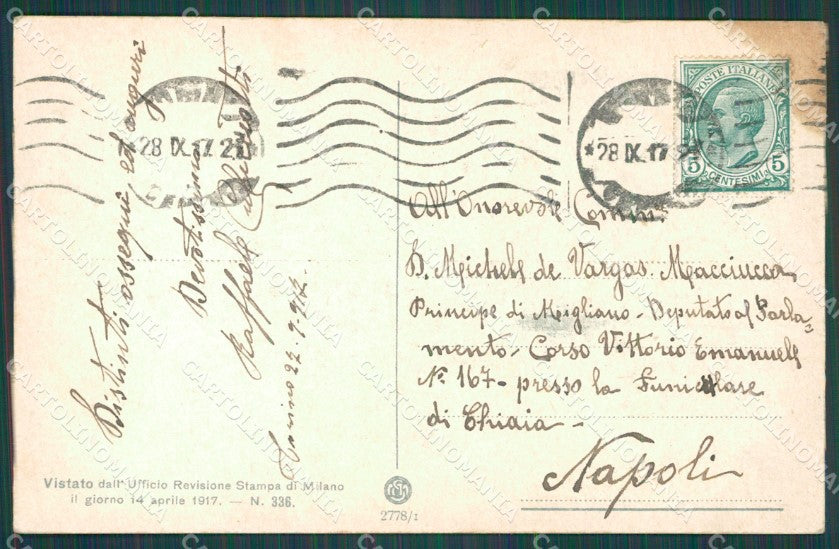 Distinti ossequi, ed auguri
Devotissimo
Raffaele
27-9-917-
28 IX.17 21
28 IX.17
POSTE ITALIANE
5 5
CENTESIMI
All'Onorevole Comm.
D. Michele de Vargas Macciucca
Principe di Migliano - Deputato al Parla-
mento - Corso Vittorio Emanuele
N.º 167 - presso la Funicolare
di Chiaia -
Napoli
Vistato dall' Ufficio Revisione Stampa di Milano
il giorno 14 aprile 1917. — N. 336.
2778/1
CARTOLINOMANIA